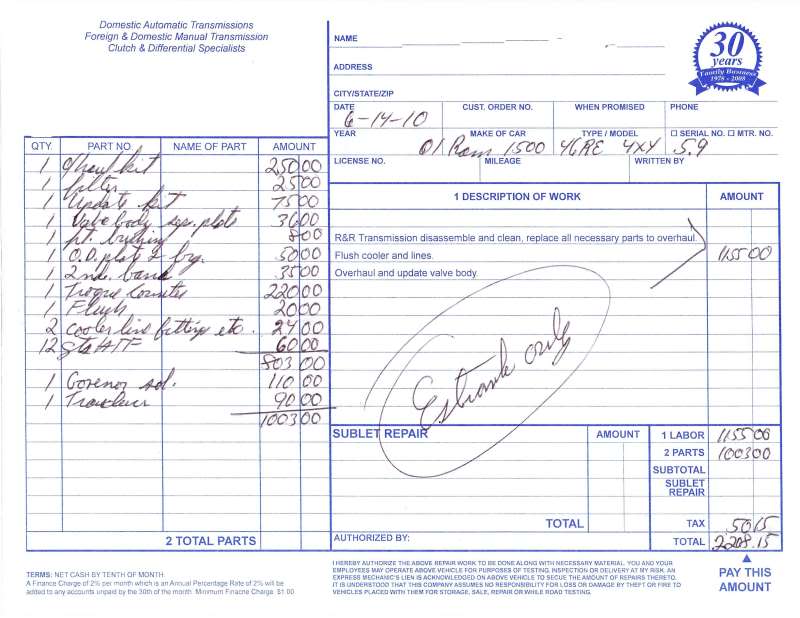 Domestic Automatic Transmissions
Foreign & Domestic Manual Transmission
Clutch & Differential Specialists
NAME
ADDRESS
CITY/STATE/ZIP
30
years
Family Business
1978 - 2008
DATE CUST. ORDER NO. WHEN PROMISED PHONE
6-14-10
YEAR MAKE OF CAR TYPE / MODEL ☐ SERIAL NO. ☐ MTR. NO.
01 Ram 1500 46RE 4X4 5.9
LICENSE NO. MILEAGE WRITTEN BY
QTY. PART NO. NAME OF PART AMOUNT
1 kit 250 00
1 filter 25 00
1 Update kit 75 00
1 Valve body sep. plate 36 00
1 ft. bushing 8 00
1 O.D. plate & brg. 50 00
1 2nd. band 35 00
1 220 00
1 Flush 20 00
2 Cooler line fittings etc. 24 00
12 ATF 60 00
803 00
1 Govenor sol. 110 00
1 90 00
1003 00
2 TOTAL PARTS
1 DESCRIPTION OF WORK AMOUNT
R&R Transmission disassemble and clean, replace all necessary parts to overhaul.
Flush cooler and lines. 1155 00
Overhaul and update valve body.
Estimate only
SUBLET REPAIR AMOUNT
1 LABOR 1155 00
2 PARTS 1003 00
SUBTOTAL
SUBLET REPAIR
TOTAL
TAX 50 15
AUTHORIZED BY:
TOTAL 2208.15
PAY THIS
AMOUNT
TERMS: NET CASH BY TENTH OF MONTH.
A Finance Charge of 2% per month which is an Annual Percentage Rate of 2% will be
added to any accounts unpaid by the 30th of the month. Minimum Finacne Charge $1.00
I HEREBY AUTHORIZE THE ABOVE REPAIR WORK TO BE DONE ALONG WITH NECESSARY MATERIAL. YOU AND YOUR
EMPLOYEES MAY OPERATE ABOVE VEHICLE FOR PURPOSES OF TESTING, INSPECTION OR DELIVERY AT MY RISK. AN
EXPRESS MECHANIC'S LIEN IS ACKNOWLEDGED ON ABOVE VEHICLE TO SECURE THE AMOUNT OF REPAIRS THERETO.
IT IS UNDERSTOOD THAT THIS COMPANY ASSUMES NO RESPONSIBILITY FOR LOSS OR DAMAGE BY THEFT OR FIRE TO
VEHICLES PLACED WITH THEM FOR STORAGE, SALE, REPAIR OR WHILE ROAD TESTING.